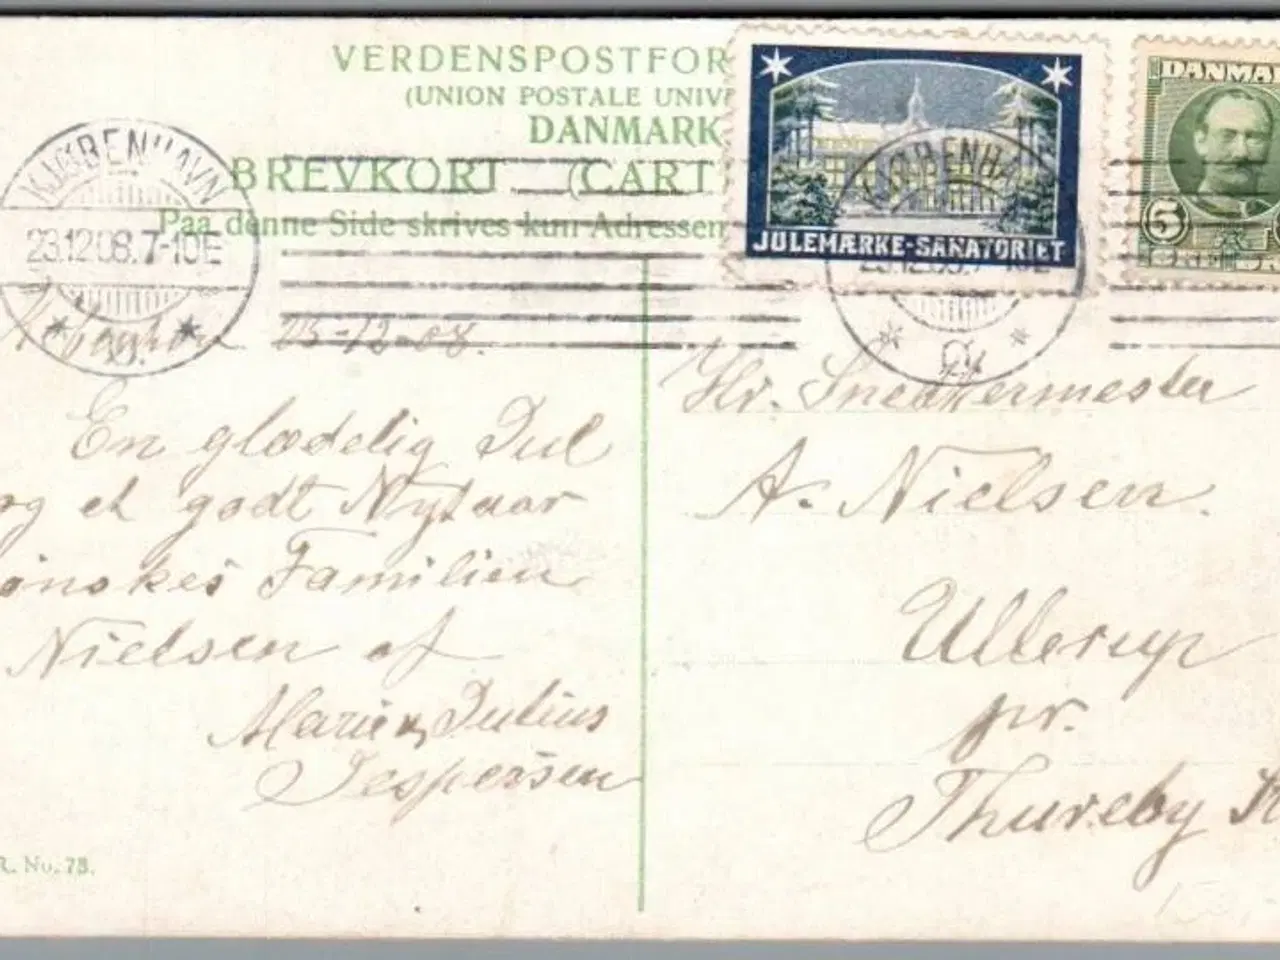 VERDENSPOSTFOR
(UNION POSTALE UNIV
DANMARK
BREVKORT (CART
Paa denne Side skrives kun Adressen
KJØBENHAVN
23.12.08.7-10E
JULEMÆRKE-SANATORIET
KJØBENHA
DANMAR
5
23-12-08.
En glædelig Jul
og et godt Nytaar
ønskes Familien
Nielsen af
Marie & Julius
Jespersen
R. No. 78.
Hr. Snedkermester
A. Nielsen.
Ullerup
pr.
Thureby